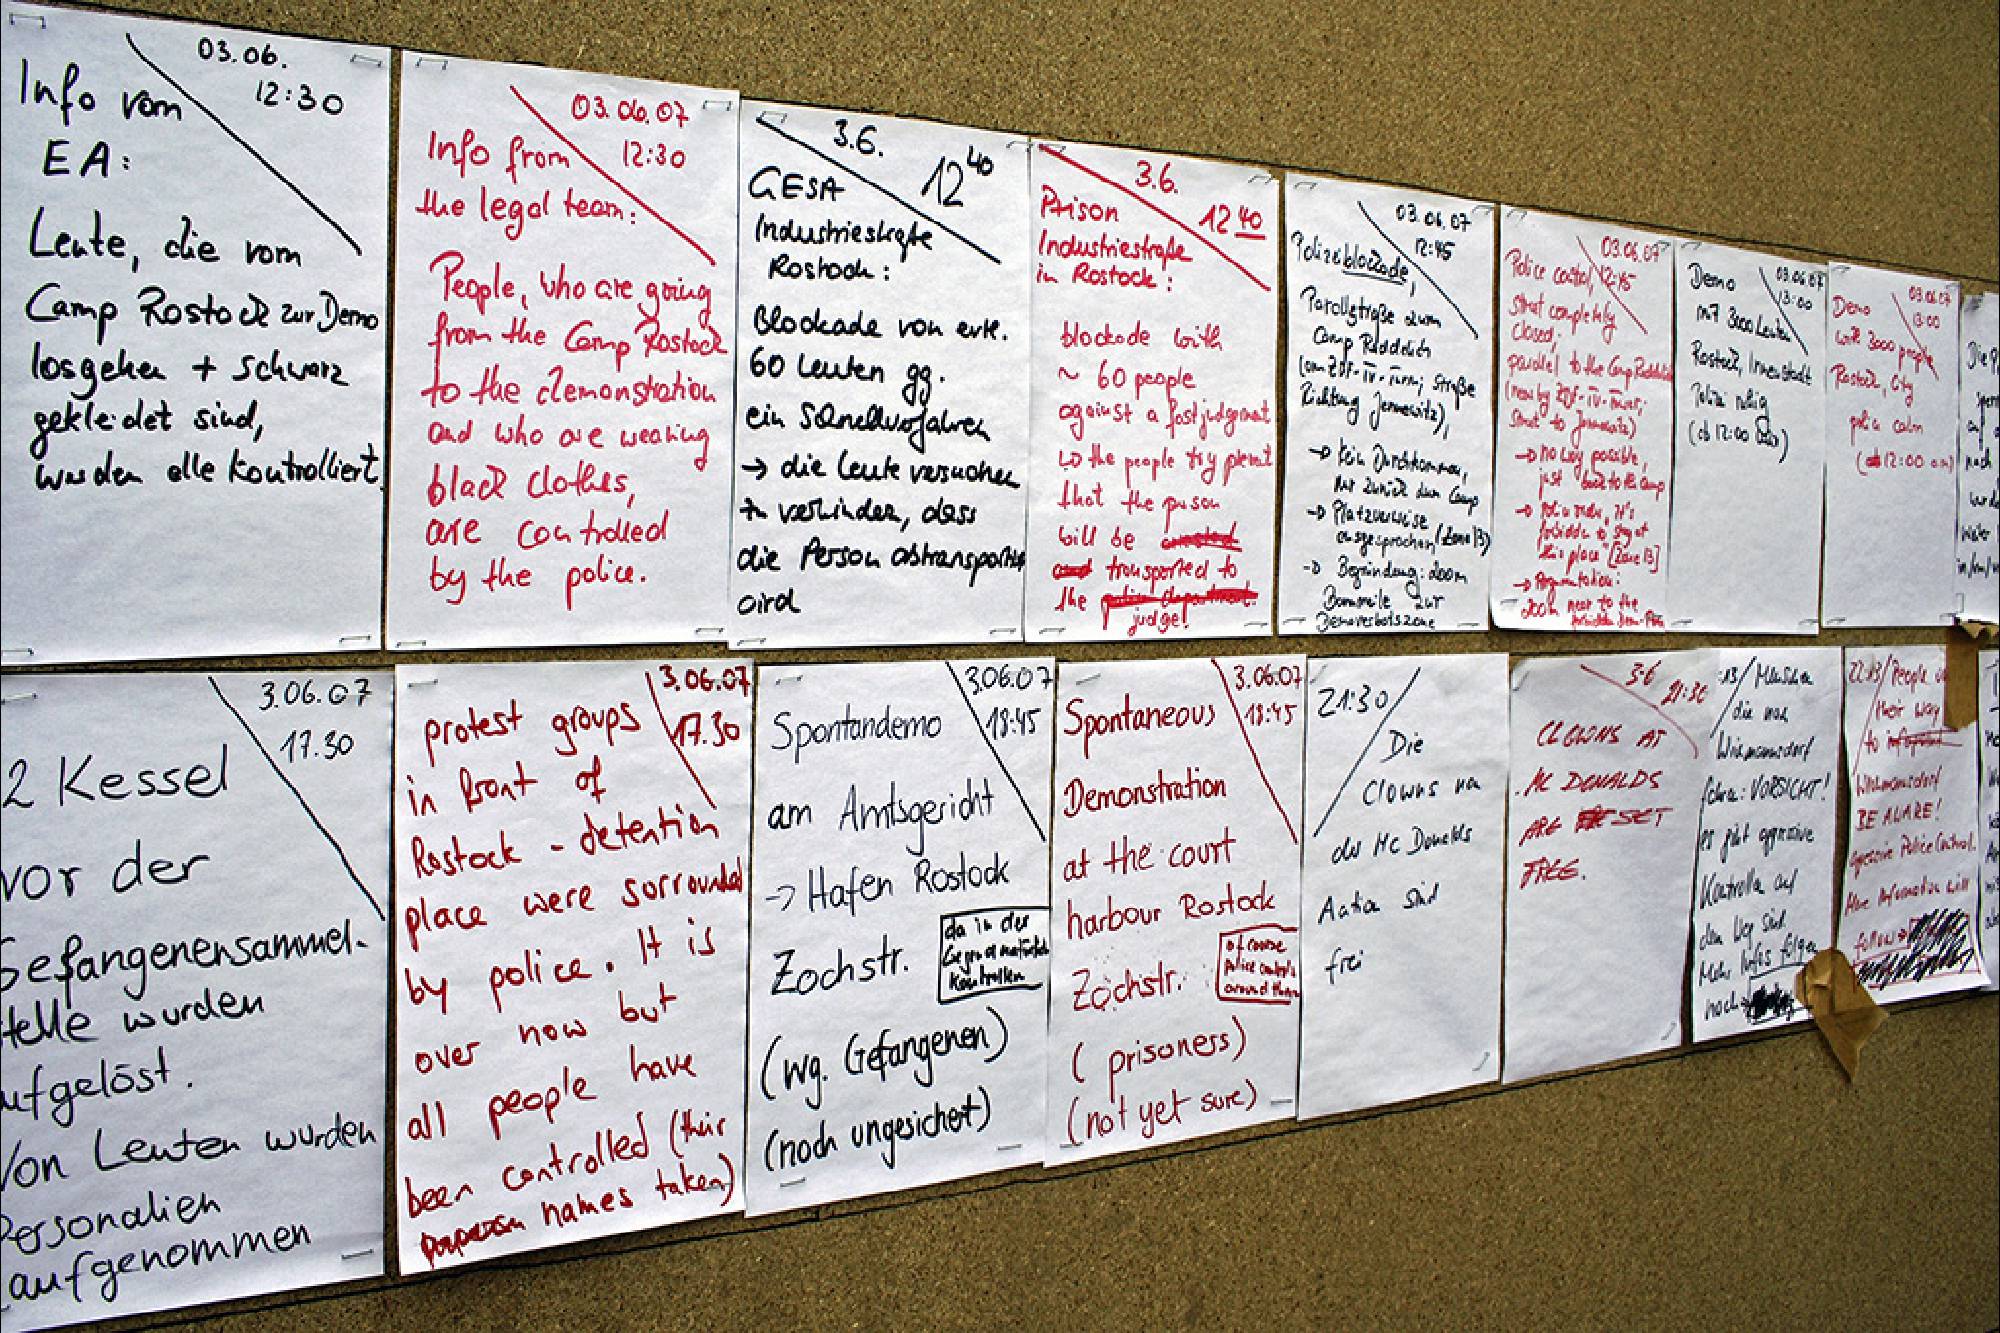 03.06.
12:30
Info vom
EA:
Leute, die vom
Camp Rostock zur Demo
losgehen + schwarz
gekleidet sind,
wurden alle kontrolliert.
03.06.07
12:30
Info from
the legal team:
People, who are going
from the Camp Rostock
to the demonstration
and who are wearing
black clothes,
are controlled
by the police.
3.6.
12 40
GESA
Industriestraße
Rostock:
Blockade von
60 Leuten gg.
ein Schnellverfahren
→ die Leute versuchen
zu verhindern, dass
die Person abtransportiert
wird
3.6.
12 40
Prison
Industriestraße
in Rostock:
blockade with
~ 60 people
against a fastjudgement
↳ the people try
that the person
will be
transported to
the
judge!
03.06.07
12:45
Polizeiblockade,
Parallstraße zum
Camp Reddelich
Straße
Richtung Jennewitz),
→ Kein Durchkommen,
nur zurück zum Camp
→ Platzverweise
ausgesprochen (Zone 13)
→ Begründung: 200m
Bannmeile zur
Demoverbotszone
03.06.07
12:45
Police control,
street completely
closed.
parallel to the Camp Reddelich
(near by ZDF-TV-Tower,
street to Jennewitz)
→ no way possible,
just back to the camp
→ police order, it's
forbidden to stay at
this place [Zone 13]
→ Argumentation:
200m near to the
forbidden
03.06.07
13:00
Demo
mit 3000 Leuten
Rostock, Innenstadt
Polizei ruhig
03.06.07
13:00
Demo
with 3000 people
Rostock, City
police calm
Die
3.06.07
17.30
2 Kessel
vor der
Gefangenensammel-
telle wurden
ufgelöst.
Von Leuten wurden
Personalien
aufgenommen
3.06.07
17.30
protest groups
in front of
Rostock - detention
place were sorrounded
by police. It is
over now but
all people have
been controlled (their
names taken)
3.06.07
18:45
Spontandemo
am Amtsgericht
→ Hafen Rostock
Zochstr.
da in der
Gegend natürlich
Kontrollen
(wg. Gefangenen)
(noch ungesichert)
3.06.07
18:45
Spontaneous
Demonstration
at the court
harbour Rostock
Zochstr.
of course
Police controls
around there
( prisoners)
(not yet sure)
21:30
Die
Clowns von
der Mc Donalds
Aktion sind
frei
3.6
21:30
CLOWNS AT
MC DONALDS
ARE SET
FREE.
:13/ Menschen
die nach
Wichmannsdorf
fahren: VORSICHT!
es gibt aggressive
Kontrollen auf
dem Weg sind
Mehr Infos folgen
noch
22:13/ People
their way
to
Wichmannsdorf
BE AWARE!
Police Control.
More Information will
follow